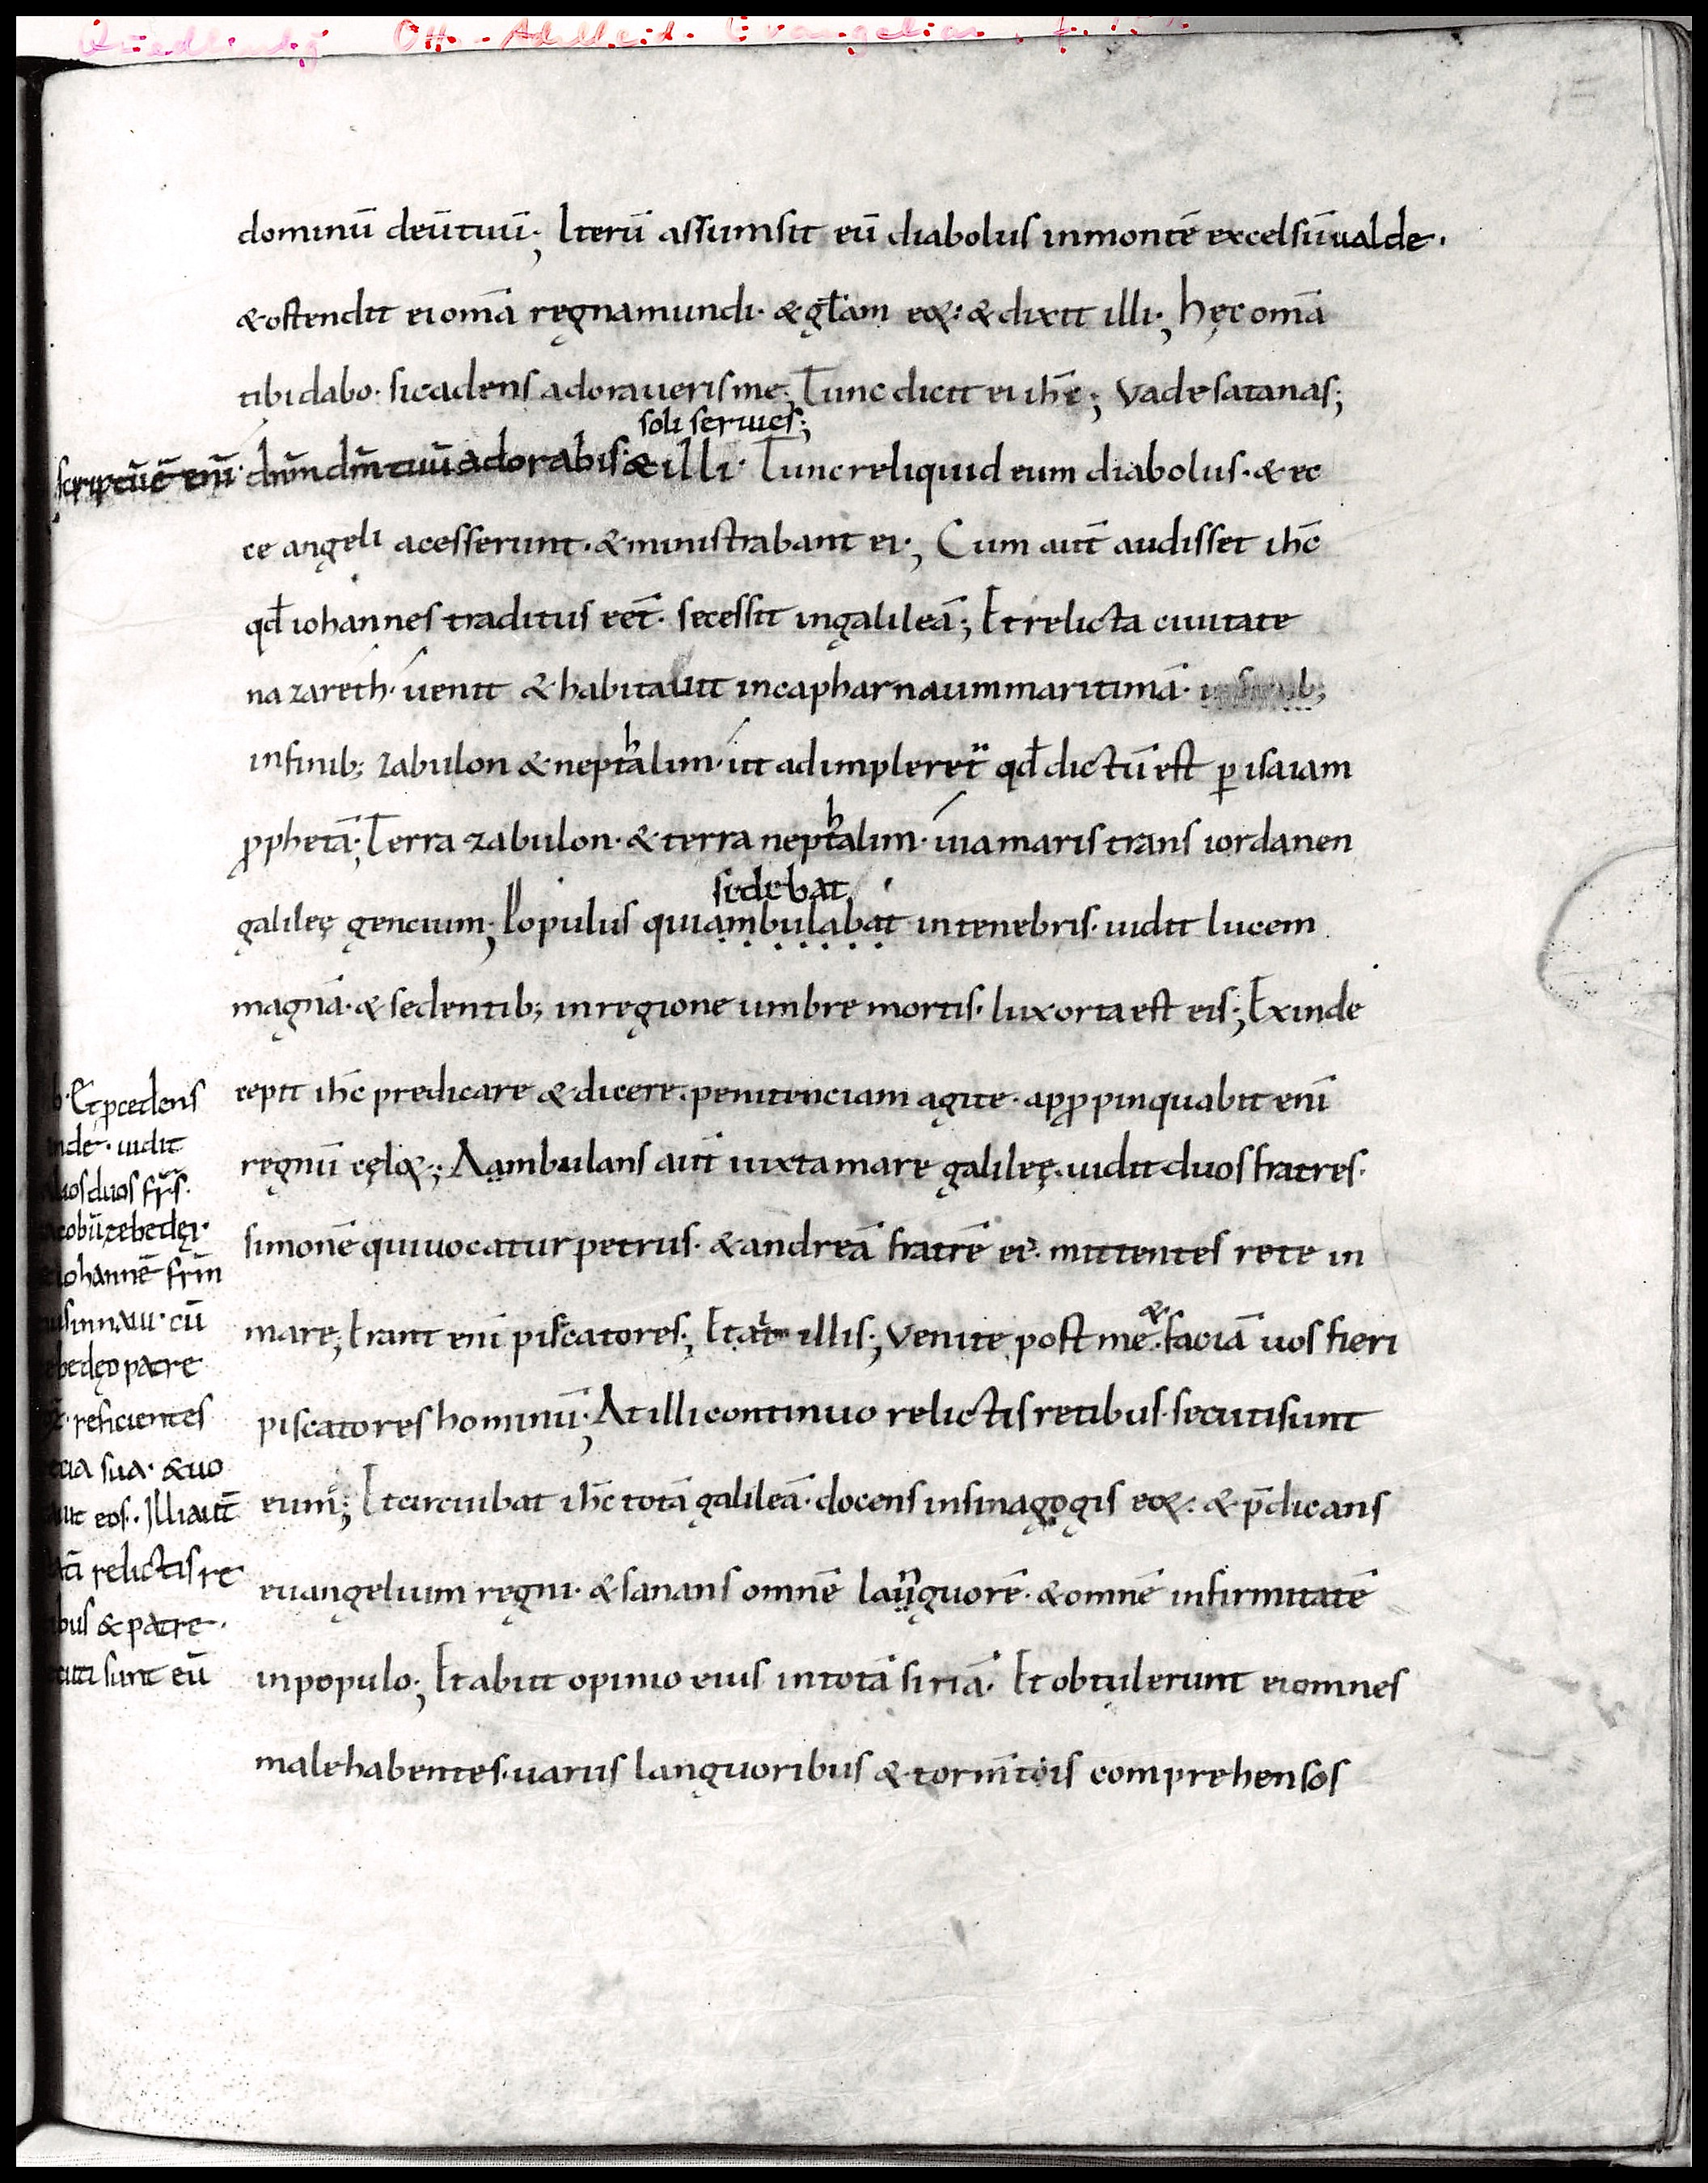 Quedlinbg Ott.-Adelheid-Evangeliar, f.
dominū deūtuū; Iterū assumsit eū diabolus inmontē excelsū ualde·
& ostendit ei omīa regnamundi· & gl̄am eoꝝ: & dixit illi; hęc omīa
tibi dabo· sicadens adorauerisme; Tunc dicit ei ih̄c; Vade satanas;
soli seruies;
scriptū ē enī· dn̄m dm̄ tuū adorabis· & illi· Tunc reliquid eum diabolus· & ec
ce angeli acesserunt· & ministrabant ei; Cum aut̄ audisset ih̄c
qd̄ iohannes traditus eēt· secessit ingalileā; Et relicta ciuitate
nazareth· uenit & habitauit incapharnaum maritimā·
infinib; zabulon & nepthalim· ut adimpleret̄ qd̄ dictū est ꝑ isaiam
ꝓphetā; Terra zabulon· & terra nepthalim· uia maris trans iordanen
sedebat
galileę gencium; Populus qui ambulabat in tenebris· uidit lucem
magnā· & sedentib; in regione umbre mortis· lux orta est eis; Exinde
cepit ih̄c predicare & dicere· penitenciam agite· apꝓpinquabit enī
regnū cęloꝝ; Aambulans aut̄ iuxta mare galileę· uidit duos fratres·
simonē qui uocatur petrus· & andreā fratrē ei᾽· mittentes rete in
mare; Erant enī piscatores; Et ait illis; Venite post me· & faciā uos fieri
piscatores hominū; At illi continuo relictis retibus· secuti sunt
eum; Et circuibat ih̄c totā galileā· docens insinagogis eoꝝ: & p̄dicans
euangelium regni· & sanans omnē languorē· & omnē infirmitatē
inpopulo; Et abiit opinio eius in totā siriā· Et obtulerunt ei omnes
male habentes· uariis languoribus & torm̄tis comprehensos
b· Et ꝓcedens
inde· uidit
alios duos fr̄s·
iacobū zebedęi·
& iohannē fr̄m
eius in naui· cū
zebedęo patre
reficientes
recia sua· & uo
cauit eos·· Illi aut̄
statī relictis re
tibus & patre·
secuti sunt eū